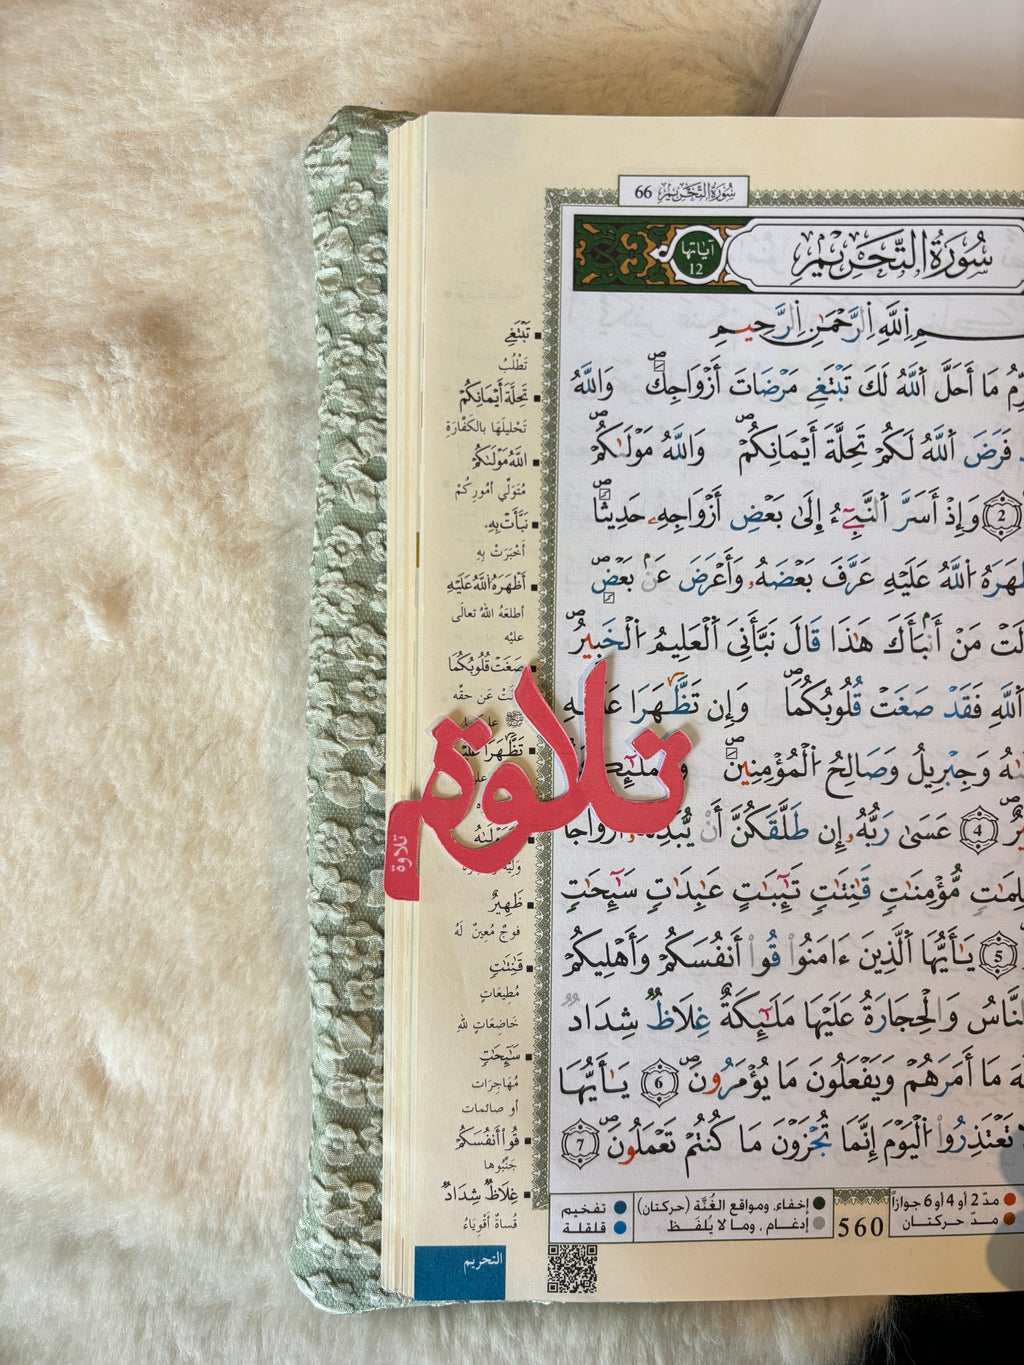 سُورَةُ التَّحْرِيمِ 66
سُورَةُ التَّحْرِيمِ
آيَاتُهَا
12
ـمِ اِ۬للَّهِ اِ۬لرَّحْمَٰنِ اِ۬لرَّحِيمِ
مَا أَحَلَّ اَ۬للَّهُ لَكَ تَبْتَغِے مَرْضَاتَ أَزْوَاجِكَۖ وَاللَّهُ
فَرَضَ اَ۬للَّهُ لَكُمْ تَحِلَّةَ أَيْمَانِكُمْۖ وَاللَّهُ مَوْلَىٰكُمْۖ
2 وَإِذْ أَسَرَّ اَ۬لنَّبِےٓءُ إِلَىٰ بَعْضِ أَزْوَاجِهِۦ حَدِيثاًۖ
اُ۬للَّهُ عَلَيْهِ عَرَّفَ بَعْضَهُۥ وَأَعْرَضَ عَنۢ بَعْضٖۖ
مَنْ أَنۢبَأَكَ هَٰذَا قَالَ نَبَّأَنِيَ اَ۬لْعَلِيمُ اُ۬لْخَبِيرُۖ
اَ۬للَّهِ فَقَدْ صَغَتْ قُلُوبُكُمَاۖ وَإِن تَظَّٰهَرَا
وَجِبْرِيلُ وَصَالِحُ اُ۬لْمُؤْمِنِينَۖ
4 عَسَىٰ رَبُّهُۥ إِن طَلَّقَكُنَّ أَنْ
مُّؤْمِنَٰتٖ قَٰنِتَٰتٖ تَٰٓئِبَٰتٍ عَٰبِدَٰتٖ سَٰٓئِحَٰتٖ
5 يَٰأَيُّهَا اَ۬لَّذِينَ ءَامَنُواْ قُواْ أَنفُسَكُمْ وَأَهْلِيكُمْ
وَالْحِجَارَةُ عَلَيْهَا مَلَٰٓئِكَةٌ غِلَاظٞ شِدَادٞ
مَا أَمَرَهُمْ وَيَفْعَلُونَ مَا يُؤْمَرُونَۖ 6 يَٰأَيُّهَا
تَعْتَذِرُواْ اُ۬لْيَوْمَ إِنَّمَا تُجْزَوْنَ مَا كُنتُمْ تَعْمَلُونَۖ 7
تَبْتَغِے
تَطْلُبُ
تَحِلَّةَ أَيْمَانِكُمْ
تَحْلِيلَهَا بالكَفَّارَةِ
اللَّهُ مَوْلَىٰكُمْ
مُتَوَلِّي أمُورِكُمْ
نَبَّأَتْ بِهِ
أَخْبَرَتْ بِهِ
أَظْهَرَهُ اللَّهُ عَلَيْهِ
أطلعَهُ اللهُ تعالَى
عليْه
صَغَتْ قُلُوبُكُمَا
عَن حقِّه
ﷺ
تَظَّٰهَرَا
ظَهِيرٌ
فوجٌ مُعِينٌ لَهُ
قَٰنِتَٰتٍ
مُطِيعَاتٍ
خَاضِعَاتٍ للهِ
سَٰٓئِحَٰتٍ
مُهَاجِرَات
أو صائمات
قُواْ أَنفُسَكُمْ
جَنِّبُوها
غِلَاظٞ شِدَادٞ
قُساةٌ أقْوِيَاءُ
تلاوة
تلاوة
مدّ 2 أو 4 أو 6 جوازاً
مدّ حركتان
560
إخفاء، ومواقع الغُنَّة (حركتان)
إدغام ، وما لا يُلفَـظ
تفخيم
قلقلة
التحريم